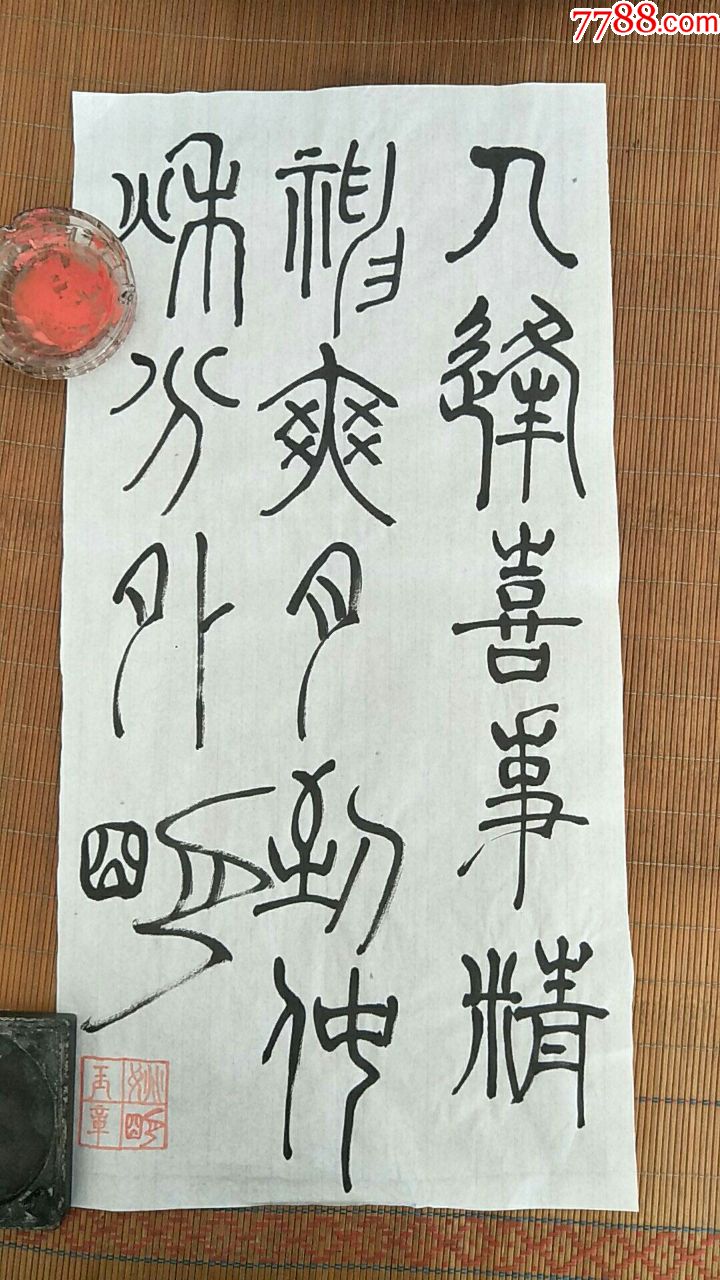 人逢喜事精
神爽月到仲
秋分外明
7788.com